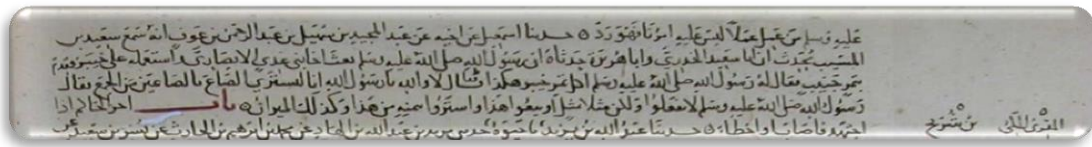 عليه وسلم من عمل عملا ليس عليه امرنا فهو رد ه حدثنا اسمعيل عن اخيه عن عبد المجيد بن سهيل بن عبد الرحمن بن عوف انه سمع سعيد بن
المسيب يحدث ان ابا سعيد الخدري وابا هريرة حدثاه ان رسول الله صلى الله عليه وسلم بعث اخا بني عدي الانصاري واستعمله على خيبر فقدم
بتمر جنيب فقال له رسول الله صلى الله عليه وسلم اكل تمر خيبر هكذا قال لا والله يا رسول الله انا لنشتري الصاع بالصاعين من الجمع فقال
رسول الله صلى الله عليه وسلم لا تفعلوا ولكن مثلا بمثل او بيعوا هذا واشتروا بثمنه من هذا وكذلك الميزان ه باب اجر الحاكم اذا
اجتهد فاصاب او اخطا ه حدثنا عبد الله بن يزيد نا حيوة حدثني يزيد بن عبد الله بن الهاد عن محمد بن ابرهيم بن الحارث عن بسر بن سعيد عن
المقرئ المكي بن شريح